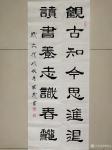 觀古知今思進退
讀書養志識春龝